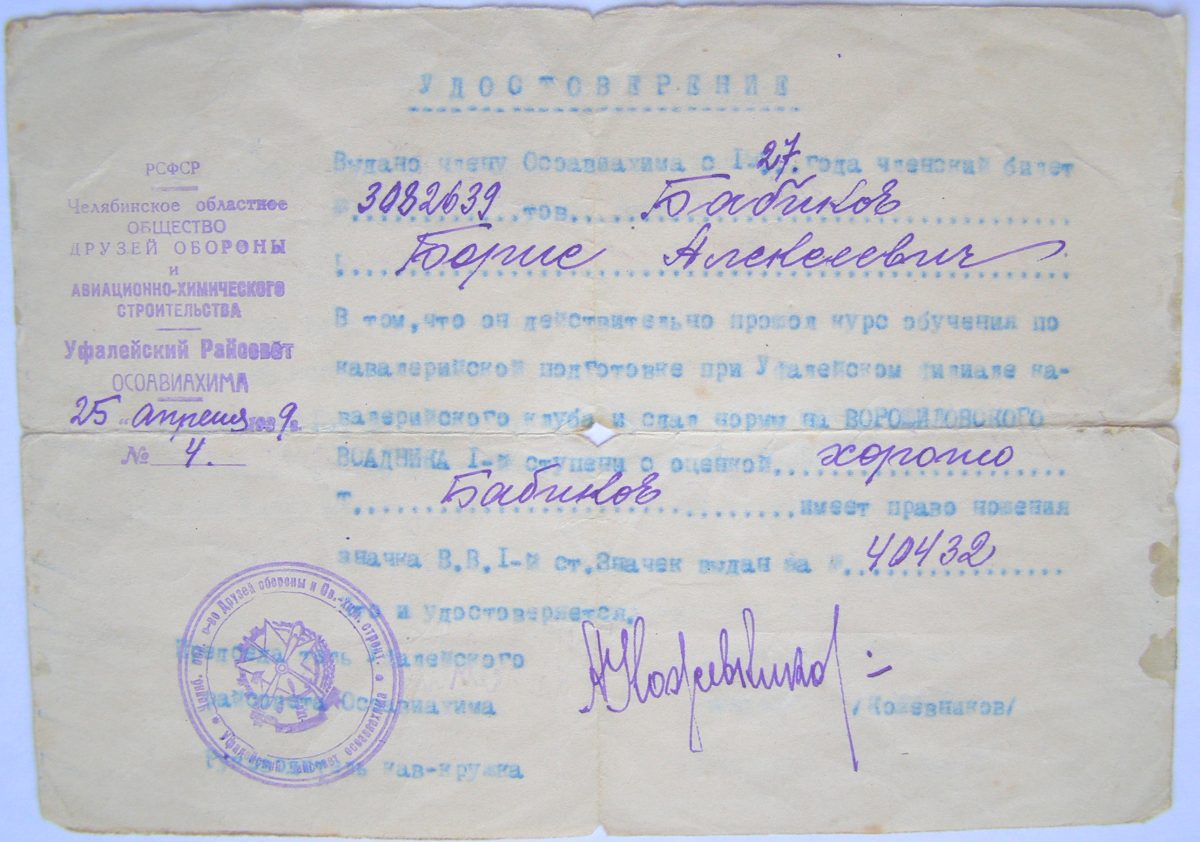 УДОСТОВЕРЕНИЕ
РСФСР
Челябинское областное
ОБЩЕСТВО
ДРУЗЕЙ ОБОРОНЫ
И
АВИАЦИОННО-ХИМИЧЕСКОГО
СТРОИТЕЛЬСТВА
Уфалейский Райсовет
ОСОАВИАХИМА
25 "апреля 1939 г.
№ 4.
Выдано члену Осоавиахима с 1927. года членский билет
№ 3082639 тов. Бабиков
Борис Алексеевич
В том, что он действительно прошел курс обучения по
кавалерийской подготовке при Уфалейском филиале ка-
валерийского клуба и сдал нормы на ВОРОШИЛОВСКОГО
ВСАДНИКА I-й ступени с оценкой хорошо
т. Бабиков имеет право ношения
значка В.В.I-й ст.Значек выдан за № 40432
что и удостоверяется.
Председатель Уфалейского
Райсовета Осоавиахима
/Кожевников/
Руководитель кав-кружка
А Кожевников